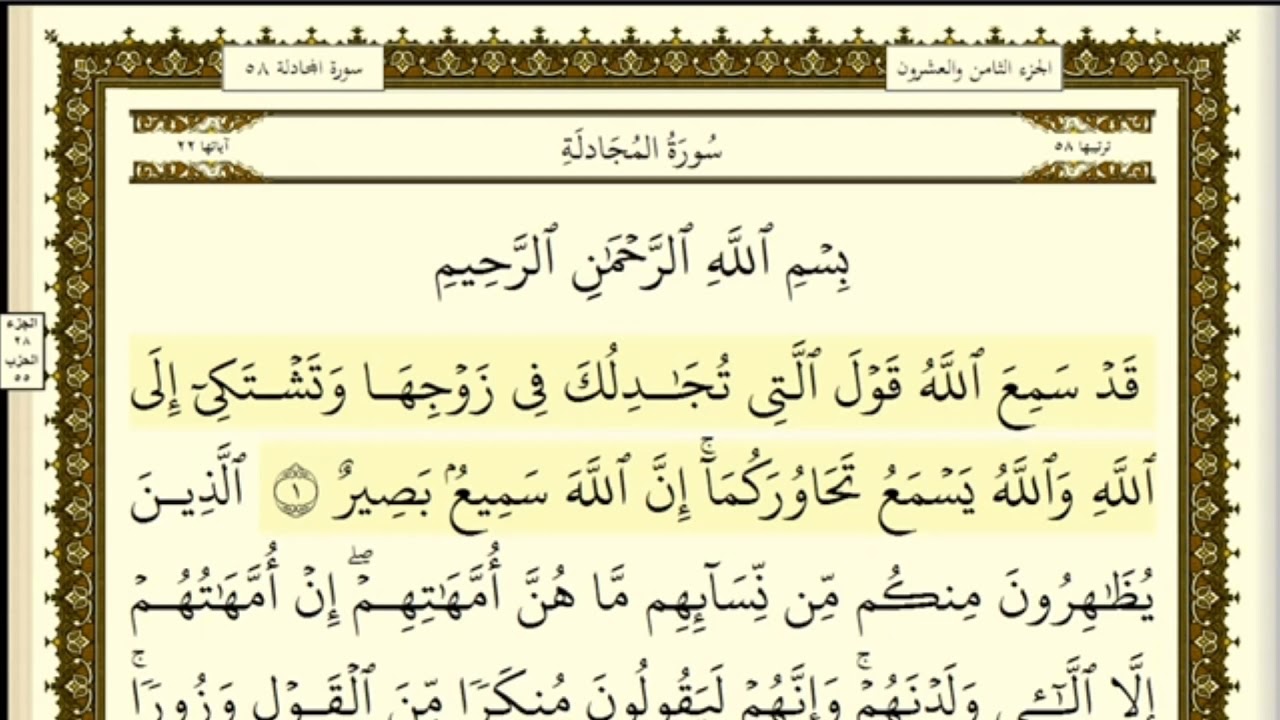 الجزء الثامن والعشرون
سورة المجادلة ٥٨
ترتيبها ٥٨
سُورَةُ المُجَادلَةِ
آياتها ٢٢
بِسۡمِ ٱللَّهِ ٱلرَّحۡمَٰنِ ٱلرَّحِيمِ
قَدۡ سَمِعَ ٱللَّهُ قَوۡلَ ٱلَّتِي تُجَٰدِلُكَ فِي زَوۡجِهَا وَتَشۡتَكِيٓ إِلَى
ٱللَّهِ وَٱللَّهُ يَسۡمَعُ تَحَاوُرَكُمَآۚ إِنَّ ٱللَّهَ سَمِيعُۢ بَصِيرٌ ١ ٱلَّذِينَ
يُظَٰهِرُونَ مِنكُم مِّن نِّسَآئِهِم مَّا هُنَّ أُمَّهَٰتِهِمۡۖ إِنۡ أُمَّهَٰتُهُمۡ
إِلَّا ٱلَّٰٓـِٔي وَلَدۡنَهُمۡۚ وَإِنَّهُمۡ لَيَقُولُونَ مُنكَرٗا مِّنَ ٱلۡقَوۡلِ وَزُورٗاۚ
الجزء
٢٨
الحزب
٥٥